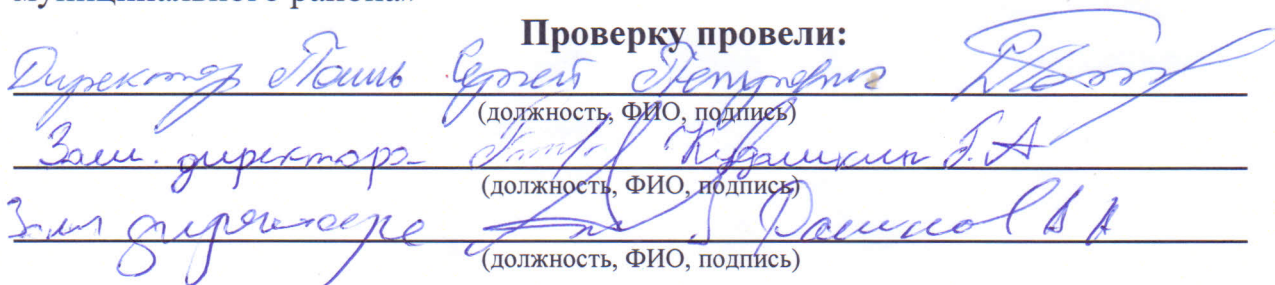 муниципального района»
Проверку провели:
Директор Паць Сергей Петрович
(должность, ФИО, подпись)
Зам. директора Кувашкин Г.А
(должность, ФИО, подпись)
Зам директора В А
(должность, ФИО, подпись)